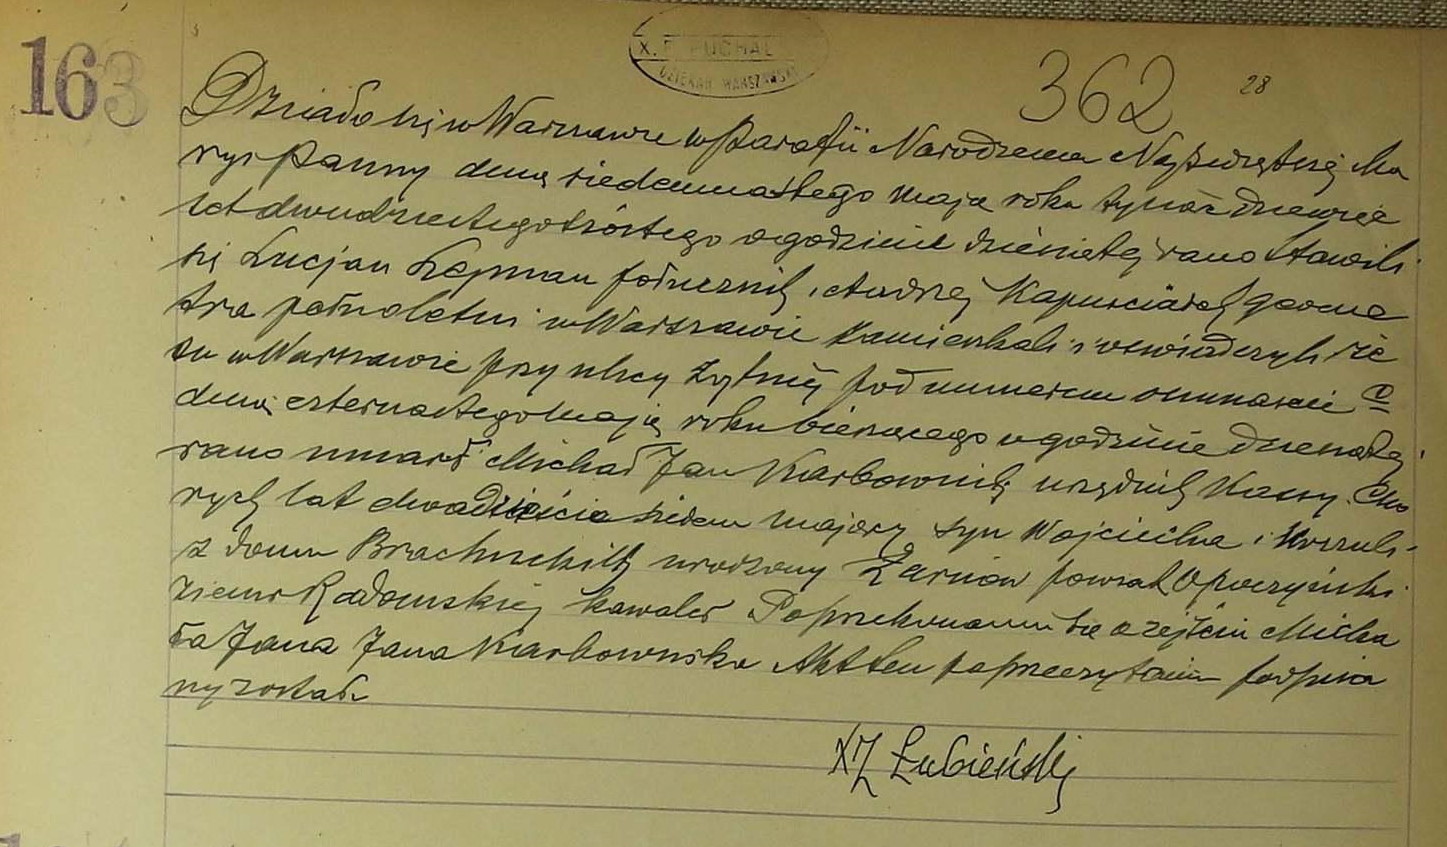 163
X. F. PUCHAL
DZIEKAN WARSZAWSKI
362 28
Działo się w Warszawie w Parafii Narodzenia Najświętszej Ma
ryi Panny dnia siedemnastego maja roku tysiąc dziewięć
set dwudziestego szóstego o godzinie dziewiątej rano Stawili
się Lucjan Lejman żołnierz i Andrzej Kapuściński geome
tra pełnoletni w Warszawie zamieszkali i oświadczyli że
tu w Warszawie przy ulicy Żytniej pod numerem
dnia czternastego maja roku bieżącego o godzinie dziewiątej
rano umarł Michał Jan Karbownik urzędnik Kassy Cho
rych lat dwadzieścia siedem mający syn Wojciecha i Urszuli
z domu urodzony Żarnów powiat Opoczyński
ziemi Radomskiej kawaler Po przekonaniu się o zejściu Micha
ła Jana Jana Karbownika Akt ten po przeczytaniu podpisa
ny został
XZ Łubieński